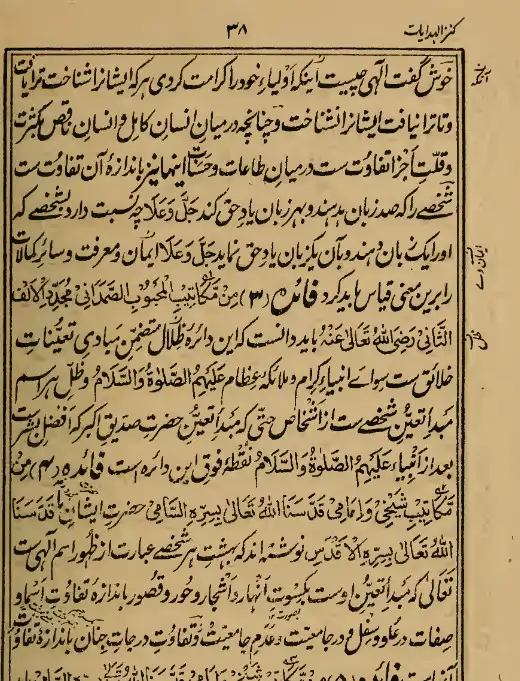 کنز الہدایات
۳۸
خوش گفت الٰہی چیست اینکہ اولیاءِ خود را کرامت کردی ہر کہ ایشانرا شناخت ترا یافت
و تا ترا نیافت ایشانرا نشناخت و چنانچہ در میان انسان کامل و انسان ناقص بکثرت
و قلّتِ اجزا تفاوت ست در میان طاعات و حسنات اینہا نیز باندازۂ آن تفاوت ست
شخصے را کہ صد زبان بدہند و بہر زبان یاد حق کند جلّ و علا چہ نسبت دارد بشخصے کہ
او را یک زبان دہند و بآن یک زبان یاد حق نماید جلّ و علا ایمان و معرفت و سائر کمالات
را برین معنی قیاس باید کرد فائدہ (۳) مِن مکاتیب المحبوب الصمدانی مجدّد الالف
الثانی رضی اللہ تعالیٰ عنہ باید دانست کہ این دائرہ ظلال متضمّن مبادی تعیّنات
خلائق ست سواے انبیاءِ کرام و ملائکہ عظام علیہم الصلوٰۃ والسلام و ظلّ ہر اسم
مبدأ تعیّن شخصے ست از اشخاص حتّٰی کہ مبدأ تعیّن حضرت صدیق اکبر کہ افضل بشرست
بعد از انبیاء علیہم الصلوٰۃ والسلام نقطۂ فوق این دائرہ است فائدہ (۴) مِن
مکاتیب شیخی و امامی قدّسنا اللہ تعالیٰ بسرّہ السامی حضرت ایشان ما قدّسنا
اللہ تعالیٰ بسرّہ الاقدس نوشتہ اند کہ بہشت ہر شخصے عبارت از ظہور اسم الٰہی ست
تعالیٰ کہ مبدأ تعیّن اوست بکسوت انہار و اشجار و حور و قصور باندازۂ تفاوت اسماو
صفات در علو و سفل و در جامعیت و عدم جامعیّت و تفاوت درجاتِ جنان باندازۂ تفاوت